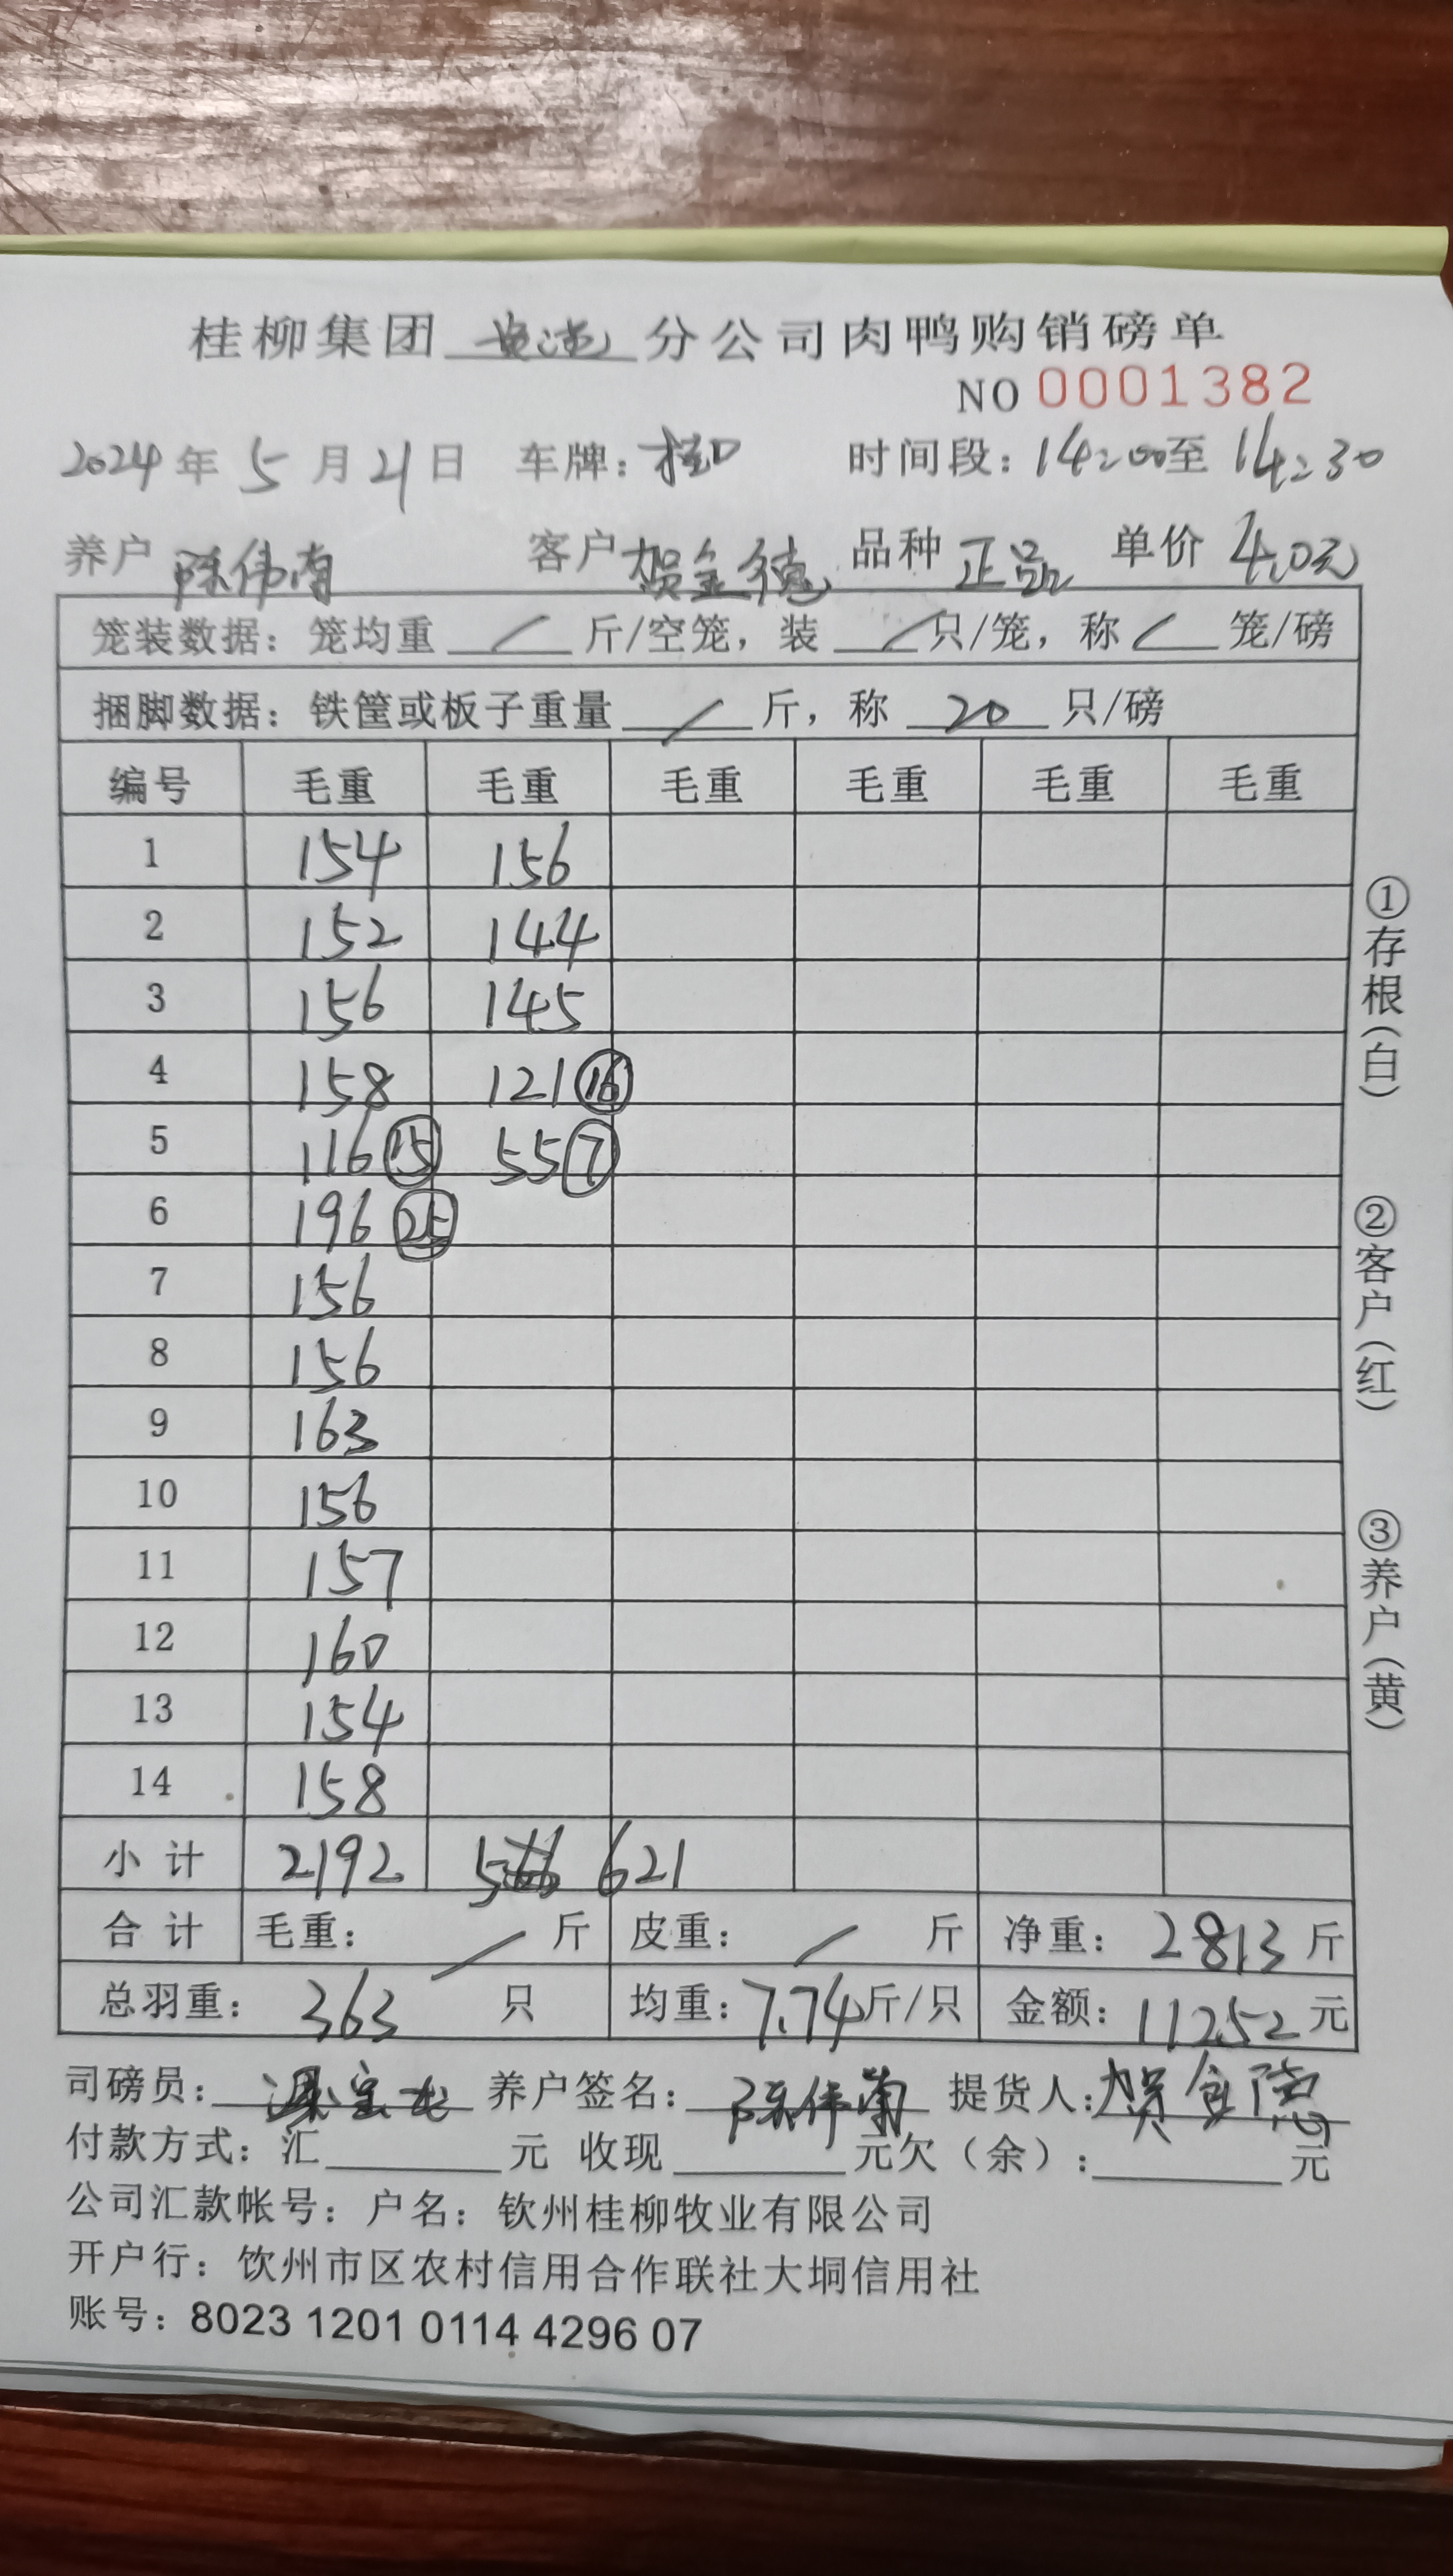 桂柳集团 分公司肉鸭购销磅单
NO 0001382
2024年 5 月 21 日 车牌: 时间段: 14:00至 14:30
养户 陈伟南 客户 贺金德 品种 正品 单价 4.0元
笼装数据: 笼均重 / 斤/空笼, 装 / 只/笼, 称 / 笼/磅
捆脚数据: 铁筐或板子重量 / 斤, 称 20 只/磅
编号 毛重 毛重 毛重 毛重 毛重 毛重
1 154 156
2 152 144
3 156 145
4 158 121 ⑯
5 116 ⑮ 55 ⑦
6 196 ㉕
7 156
8 156
9 163
10 156
11 157
12 160
13 154
14 158
小计 2192 621
合计 毛重: / 斤 皮重: / 斤 净重: 2813 斤
总羽重: 363 只 均重: 7.74 斤/只 金额: 11252 元
司磅员: 养户签名: 陈伟南 提货人: 贺金德
付款方式: 汇 元 收现 元欠(余): 元
公司汇款帐号: 户名: 钦州桂柳牧业有限公司
开户行: 饮州市区农村信用合作联社大垌信用社
账号: 8023 1201 0114 4296 07
①存根(白)
②客户(红)
③养户(黄)